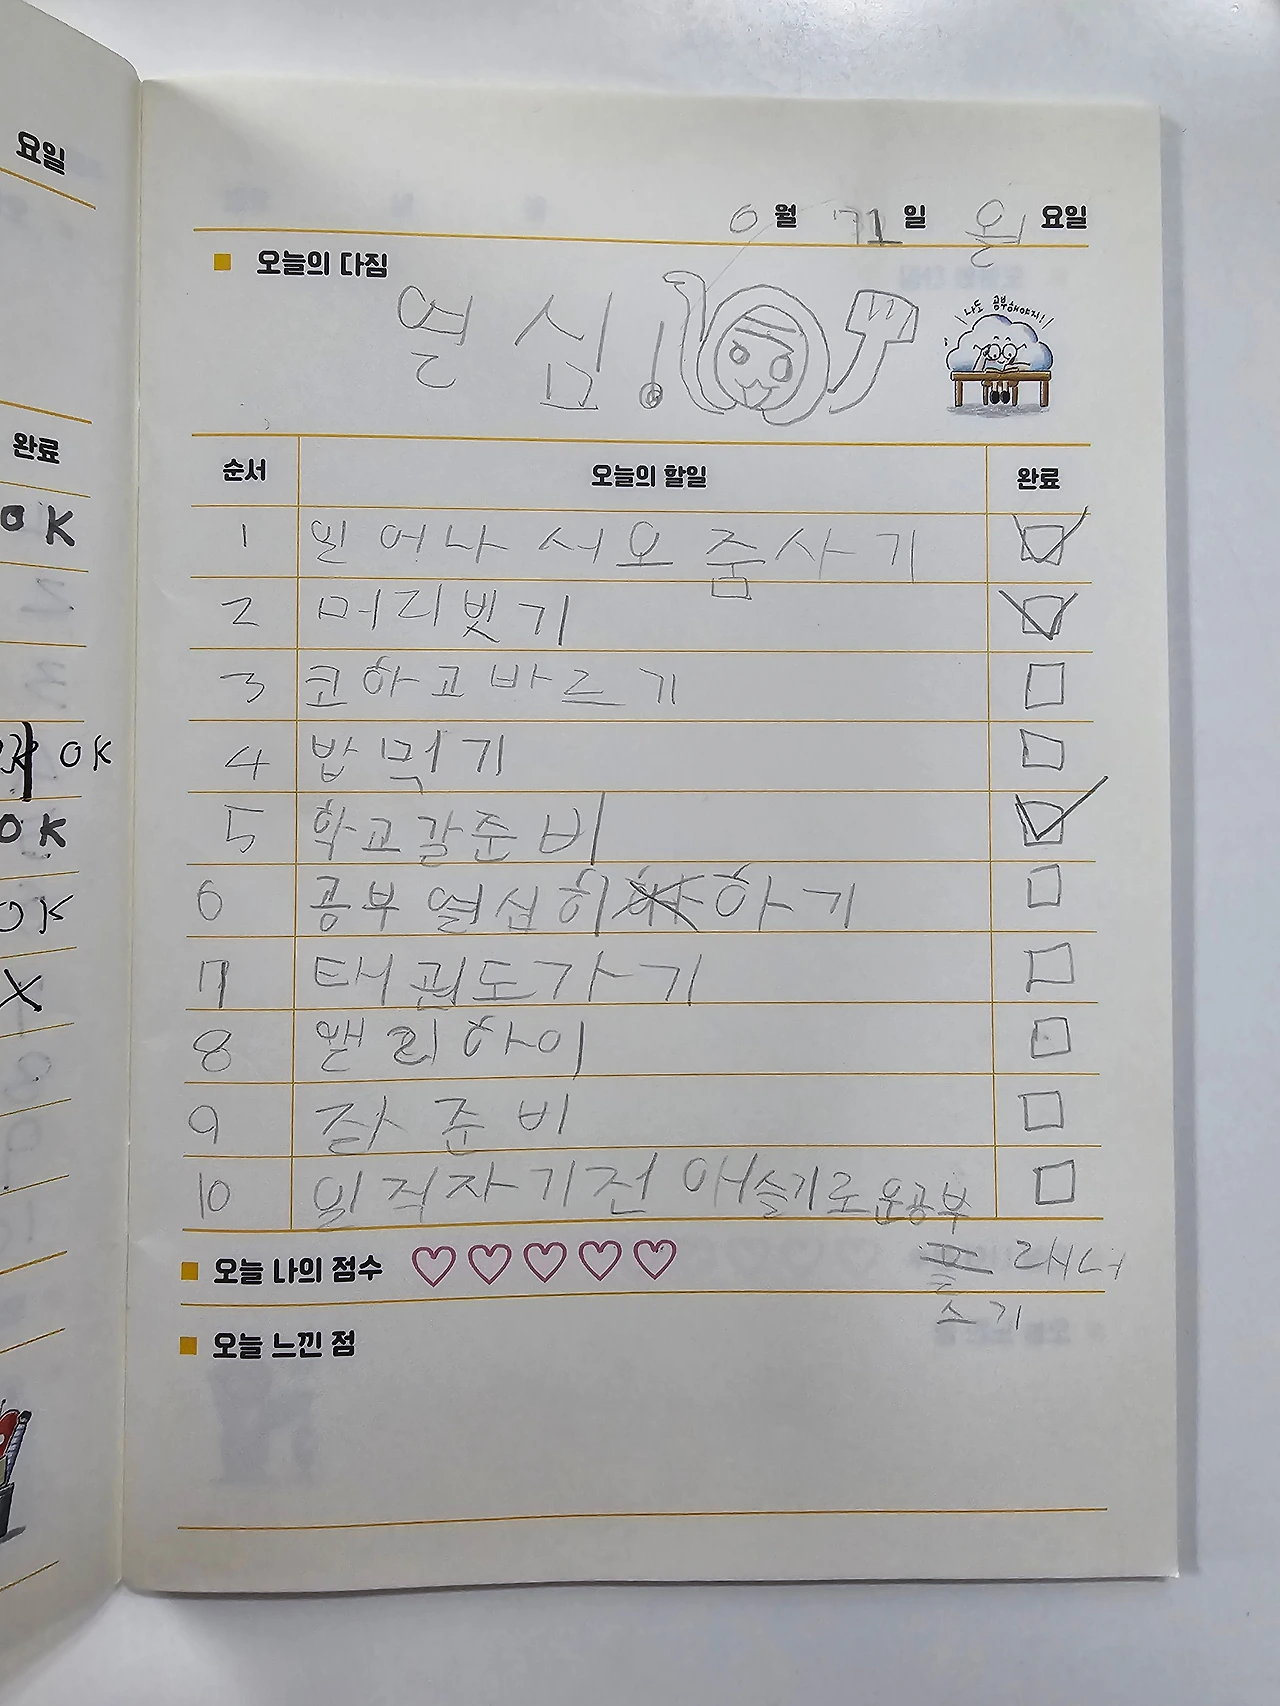 요일
완료
OK
OK
OK
OK
X
0월 71일 월요일
오늘의 다짐
열심!
나도 공부해야지!
순서 오늘의 할일 완료
1 인어나서오줌사기
2 머리빗기
3 코하고바르기
4 밥먹기
5 학교갈준비
6 공부열심히하기
7 태권도가기
8 앤리하이
9 잘준비
10 일직자기전애슬기로운공부
플래너
스기
오늘 나의 점수
오늘 느낀 점